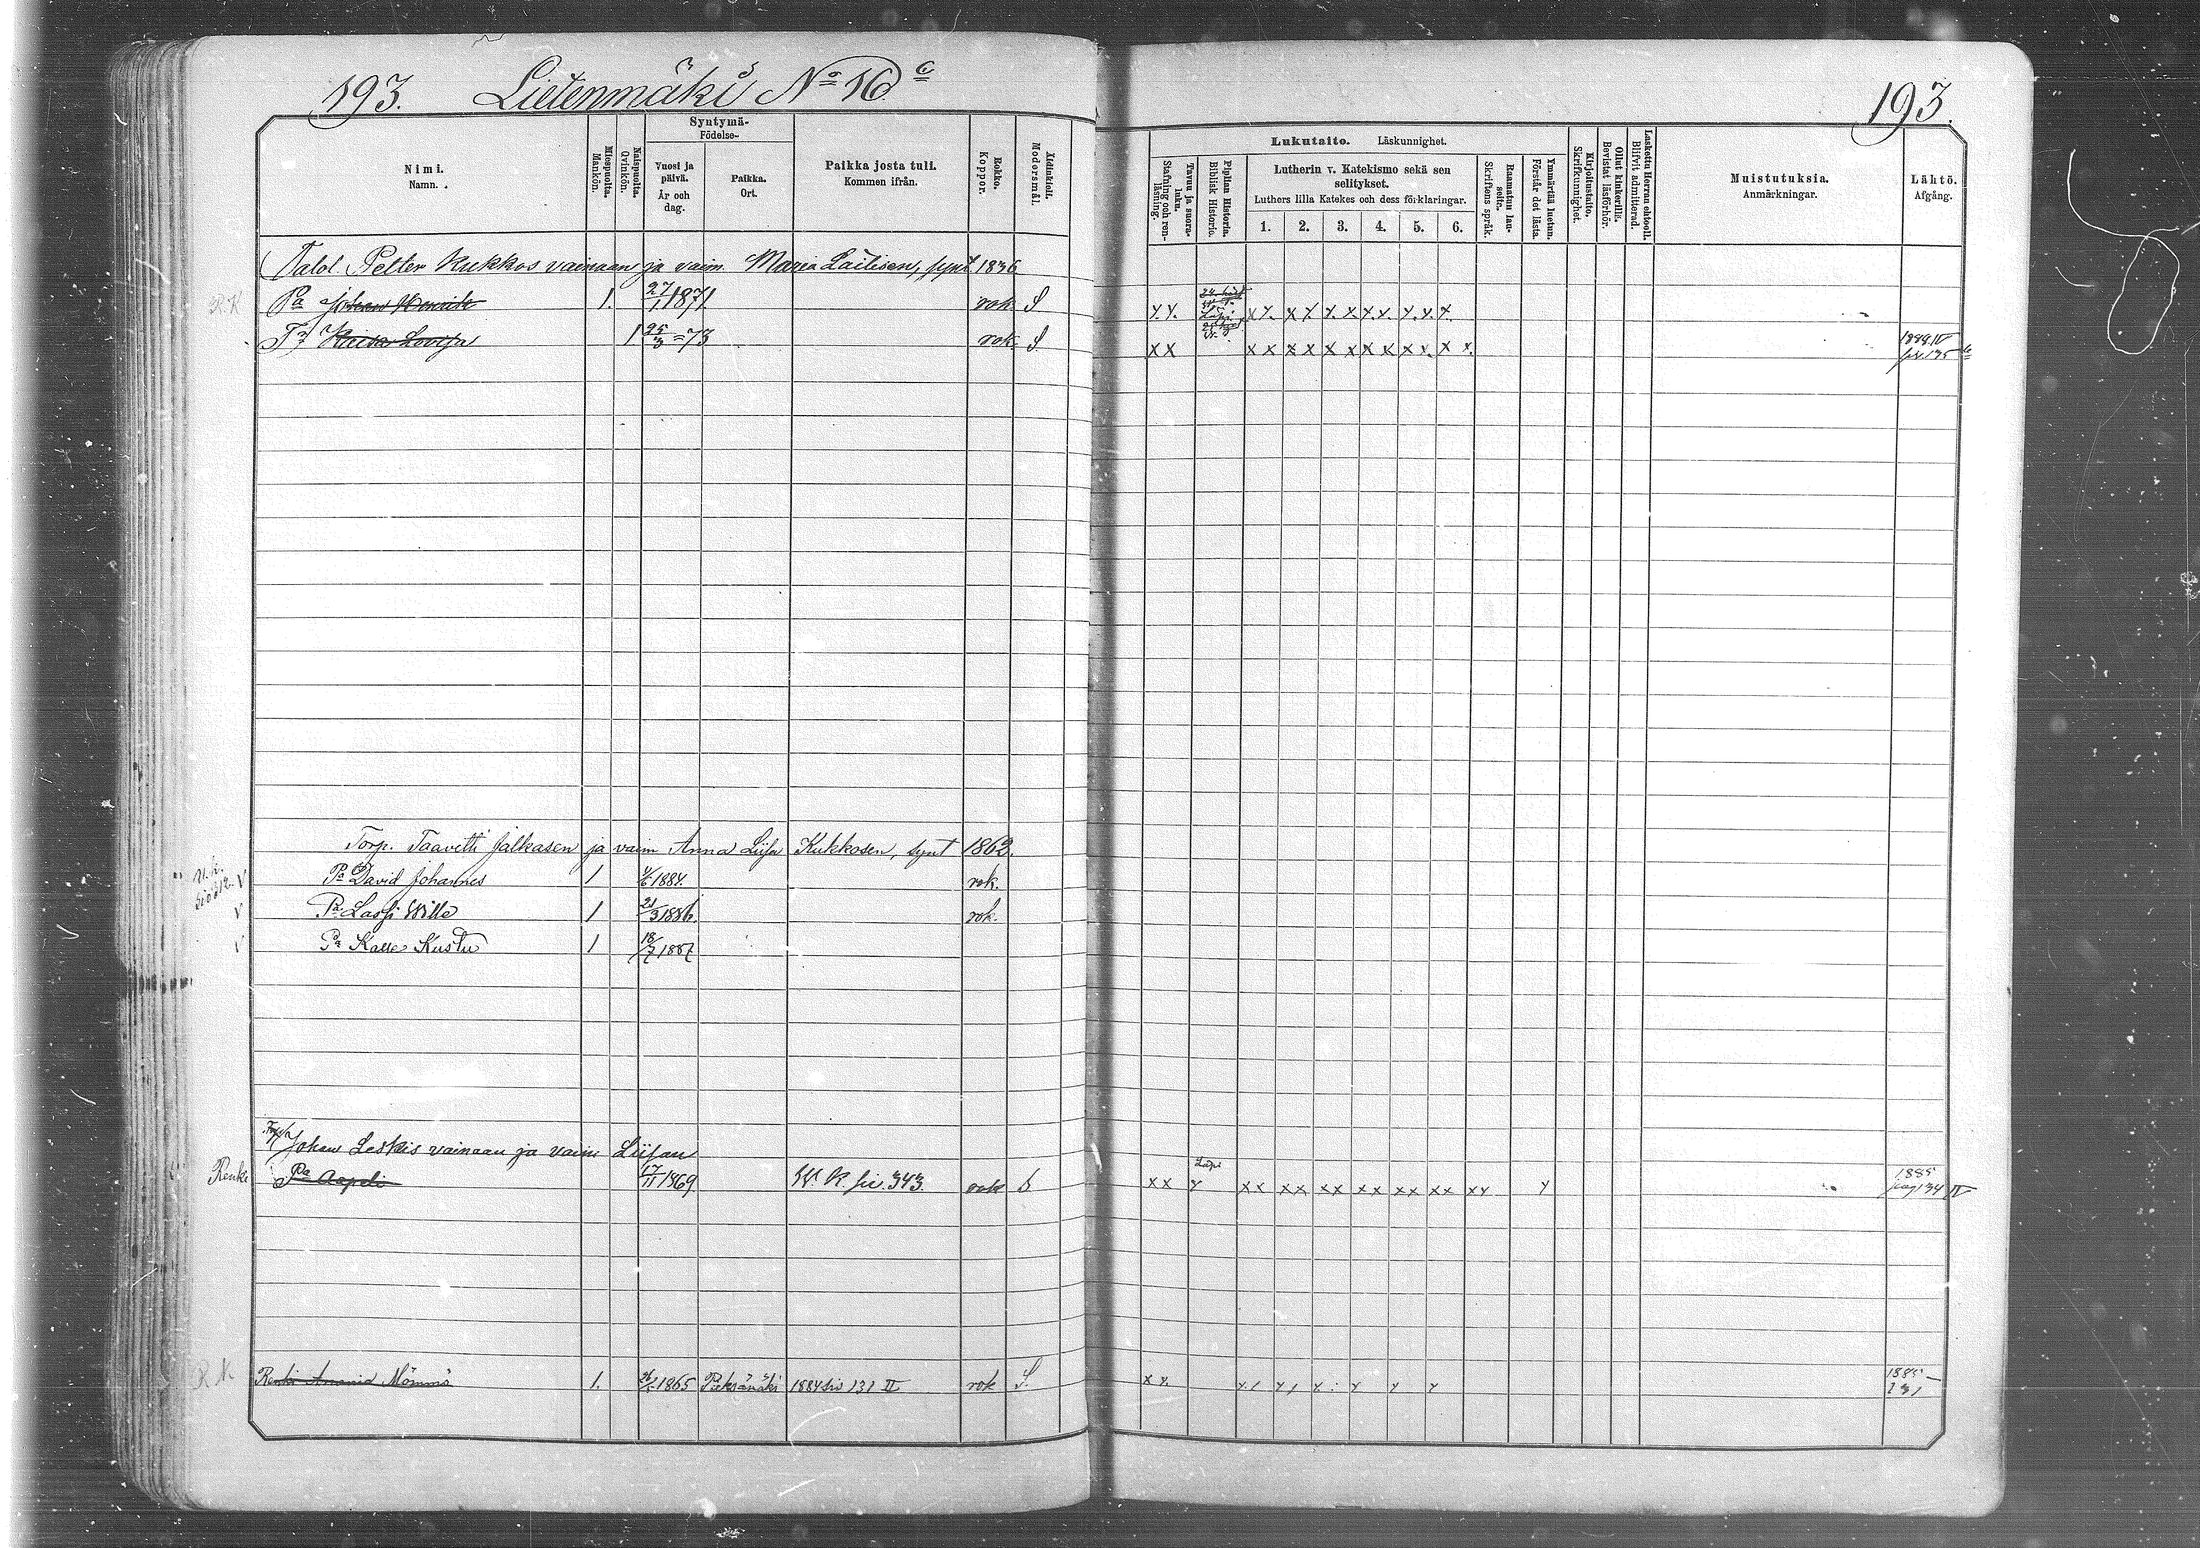 193. Lietenmäki No 16 c
193.
Nimi.
Namn.
Miespuolta.
Mankön.
Naispuolta.
Qvinkön.
Syntymä-
Födelse-
Vuosi ja
päivä.
År och
dag.
Paikka.
Ort.
Paikka josta tuli.
Kommen ifrån.
Rokko.
Koppor.
Äidinkieli.
Modersmål.
Lukutaito. Läskunnighet.
Tavuu ja suora-
luku.
Stafning och ren-
läsning.
Piplian Historia.
Biblisk Historie.
Lutherin v. Katekismo sekä sen
selitykset.
Luthers lilla Katekes och dess förklaringar.
1. 2. 3. 4. 5. 6.
Raamatun lau-
seita.
Skriftens språk.
Ymmärtää luetun.
Förstår det lästa.
Kirjoitustaito.
Skrifkunnighet.
Ollut kinkerillä.
Bevistat läsförhör.
Laskettu Herran ehtooll.
Blifvit admitterad.
Muistutuksia.
Anmärkningar.
Lähtö.
Afgång.
Talol. Petter Kukkos vainaan ja vaim. Maria Lailisen, synt 1836
R.K Pa Johan Henrik 1. 27/1 1871. rok. S x x. x x. x x. x. x. x. x. x. x. x.
Tr Lovisa 1 25/3 = 73 rok. S x x x x x x x x x x x x. x x. 1888 IV
Torp. Taavetti Jalkasen ja vaim Anna Liisa Kukkosen, synt 1862.
V Pa David Johannes 1 1884. rok.
V Pa Lassi Wille 1 21/3 1886. rok.
V Pa Kalle Kustu 1 18/7 1887
Johan Leskis vainaan ja vaim Liisan
Renki Pa Aapeli 17/11 1869 W. K. siv. 343. rok S x x x x x x x x x x x x x x x x 1885
pag 134 IV
R K Renki Ananid Mömmö 1. 1865 Pieksämäki 1884 siv 131 IV rok S. x x. 1885
131